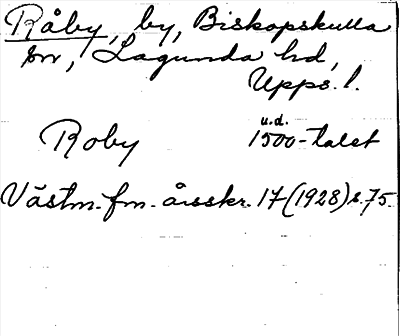 Råby, by, Biskopskulla
sn, Lagunda hd,
Upps. l.
u.d.
Roby 1500-talet
Västm. fm. årsskr. 17 (1928) s. 75.